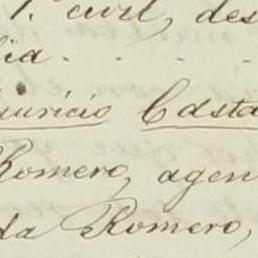 P. civil, des
lia.
auricio Costa
Romero, agen
da Romero,